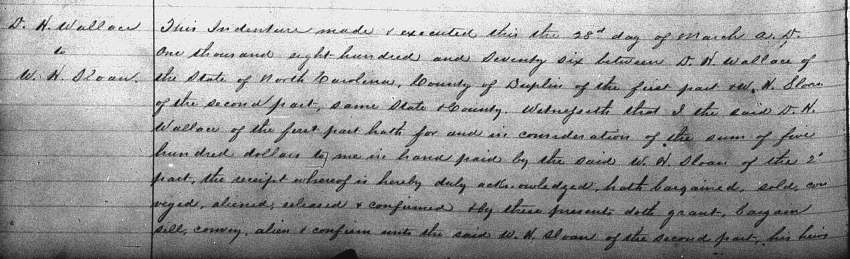 D. H. Wallace
to
W. H. Sloan.
This Indenture made & executed this the 28d day of March A. D.
One thousand eight hundred and Seventy six between D. H. Wallace of
the State of North Carolina, County of Duplin of the first part & W. H. Sloan
of the second part, same State & County. Witnesseth that I the said D. H.
Wallace of the first part hath for and in consideration of the sum of five
hundred dollars to me in hand paid by the said W. H. Sloan of the 2d
part, the receipt whereof is hereby duly acknowledged, hath bargained, sold, con
veyed, aliened, released & confirmed & by these presents doth grant, bargain
sell, convey, alien & confirm unto the said W. H. Sloan of the second part, his heirs